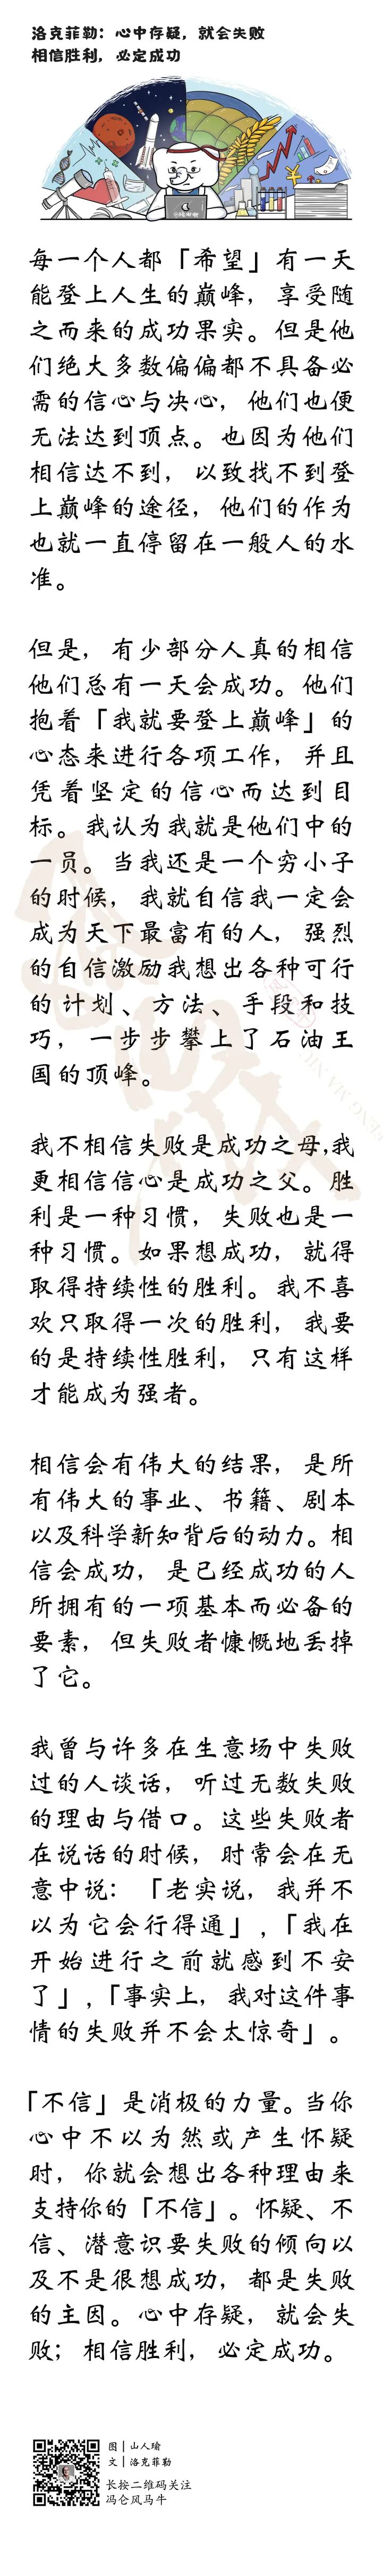 洛克菲勒：心中存疑，就会失败
相信胜利，必定成功
每一个人都「希望」有一天
能登上人生的巅峰，享受随
之而来的成功果实。但是他
们绝大多数偏偏都不具备必
需的信心与决心，他们也便
无法达到顶点。也因为他们
相信达不到，以致找不到登
上巅峰的途径，他们的作为
也就一直停留在一般人的水
准。
但是，有少部分人真的相信
他们总有一天会成功。他们
抱着「我就要登上巅峰」的
心态来进行各项工作，并且
凭着坚定的信心而达到目
标。我认为我就是他们中的
一员。当我还是一个穷小子
的时候，我就自信我一定会
成为天下最富有的人，强烈
的自信激励我想出各种可行
的计划、方法、手段和技
巧，一步步攀上了石油王
国的顶峰。
我不相信失败是成功之母,我
更相信信心是成功之父。胜
利是一种习惯，失败也是一
种习惯。如果想成功，就得
取得持续性的胜利。我不喜
欢只取得一次的胜利，我要
的是持续性胜利，只有这样
才能成为强者。
相信会有伟大的结果，是所
有伟大的事业、书籍、剧本
以及科学新知背后的动力。相
信会成功，是已经成功的人
所拥有的一项基本而必备的
要素，但失败者慷慨地丢掉
了它。
我曾与许多在生意场中失败
过的人谈话，听过无数失败
的理由与借口。这些失败者
在说话的时候，时常会在无
意中说：「老实说，我并不
以为它会行得通」,「我在
开始进行之前就感到不安
了」,「事实上，我对这件事
情的失败并不会太惊奇」。
「不信」是消极的力量。当你
心中不以为然或产生怀疑
时，你就会想出各种理由来
支持你的「不信」。怀疑、不
信、潜意识要失败的倾向以
及不是很想成功，都是失败
的主因。心中存疑，就会失
败；相信胜利，必定成功。
图｜山人瑜
文｜洛克菲勒
长按二维码关注
冯仑风马牛